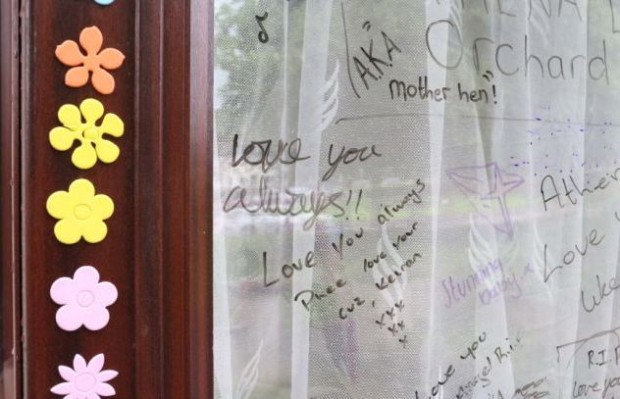 Orchard
"AKA
mother hen"!
Love you
always!!
Love You always
Phee love your
cuz, Keiran
xxx
xx
Stunning
baby x
Love
like
R.I.P
Love you
Love you
Angel R.I.P